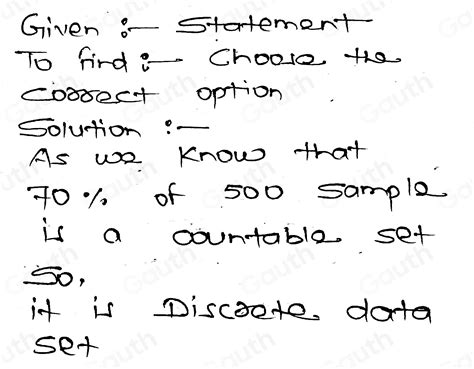 Given :- Statement
To find :- Choose the
correct option
Solution :-
As we know that
70 % of 500 sample
is a countable set
So,
it is Discrete data
set